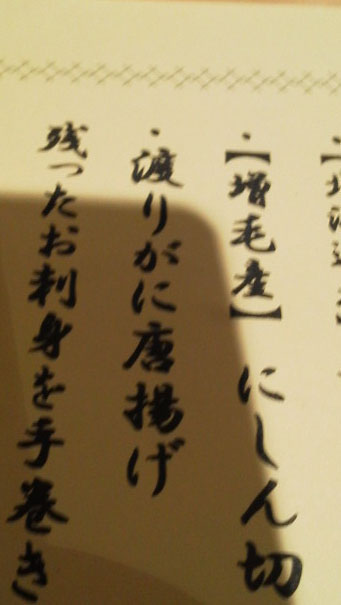 ・【増毛産】にしん切
・渡りがに唐揚げ
残ったお刺身を手巻き